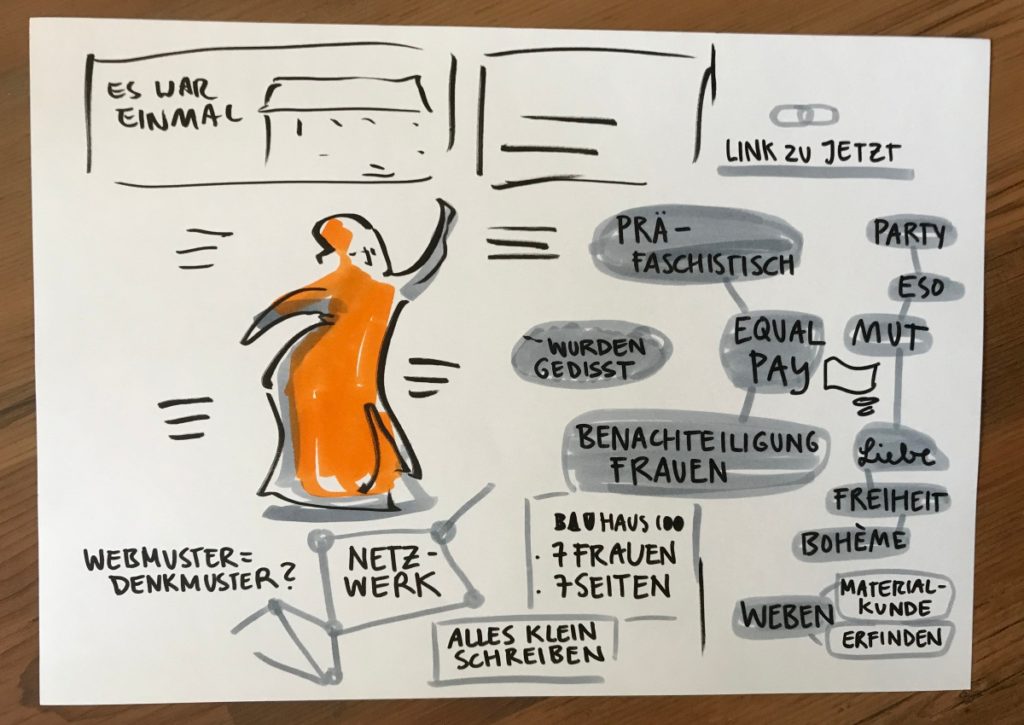 ES WAR
EINMAL
LINK ZU JETZT
PRÄ-
FASCHISTISCH
PARTY
ESO
WURDEN
GEDISST
EQUAL
PAY
MUT
BENACHTEILIGUNG
FRAUEN
Liebe
FREIHEIT
BOHÈME
WEBMUSTER=
DENKMUSTER?
NETZ-
WERK
BAUHAUS 100
· 7 FRAUEN
· 7 SEITEN
ALLES KLEIN
SCHREIBEN
WEBEN
MATERIAL-
KUNDE
ERFINDEN